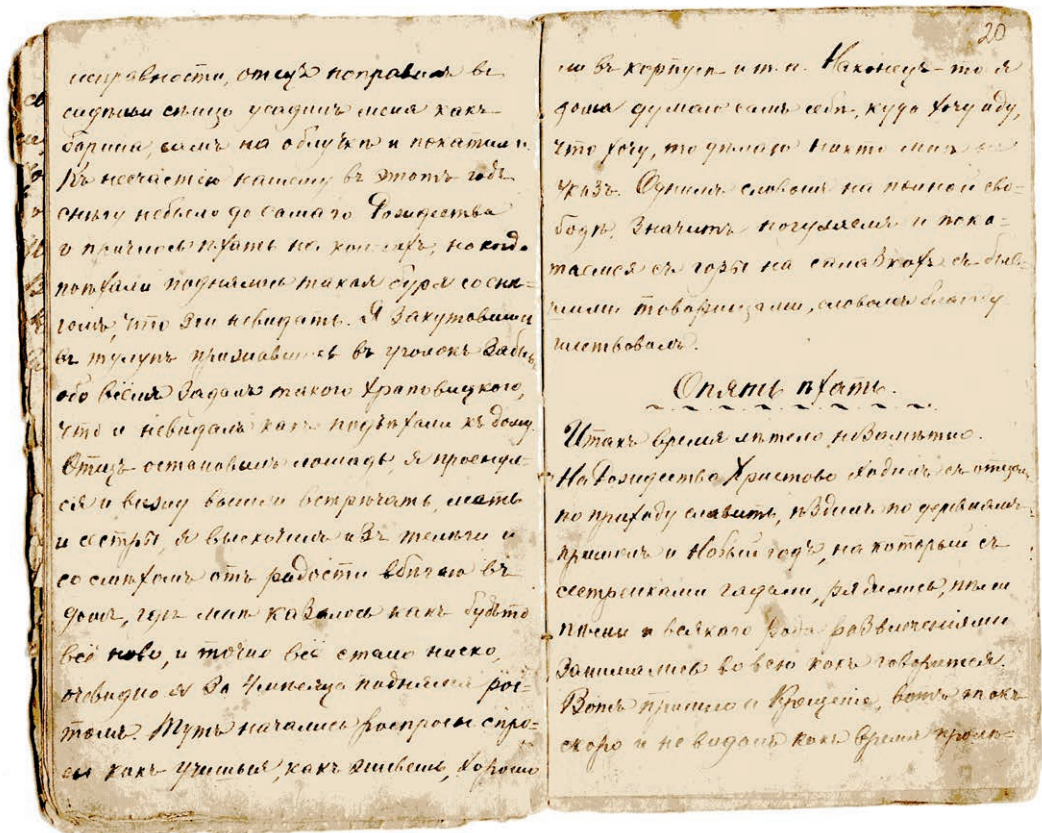 исправности, отецъ поправилъ въ
сиденьи сѣнцо усадилъ меня какъ
барина, самъ на облучкѣ и покатили.
Къ несчастію нашему въ этотъ годъ
снѣгу небыло до самаго Рождества
и пришлось ѣхать на колесахъ, но когда
поѣхали поднялась такая буря со снѣ-
гомъ, что зги невидать. Я закутавшись
въ тулупъ прижавшись въ уголокъ
обо всёмъ задалъ такого Храповицкого,
что и невидалъ какъ подъѣхали къ дому.
Отецъ остановилъ лошадь я проснул-
ся и вышли встрѣчать, мать
и сестры, я выскочилъ изъ телѣги и
со смѣхомъ отъ радости вбѣгаю въ
домъ, гдѣ мнѣ казалось какъ будьто
всё ново, и точно всё стало ниско,
очевидно я за 4 мѣсяца поднялся рос-
томъ. Тутъ начались роспросы спро-
сы какъ учишься, какъ живешь, хорошо
20
ли въ корпусѣ и т. п. Наконецъ-то я
дома думаю самъ себѣ, куда хочу иду,
что хочу, то дѣлаю никто мнѣ не
указъ. Однимъ словомъ на полной сво-
бодѣ. Значитъ погуляемъ и пока-
таемся съ горы на салазкахъ съ быв-
шими товарищами, словомъ благоду
шествовалъ.
Опять ѣхать.
Итакъ время лѣтело незамѣтно.
На Рождество Христово ходилъ съ отцомъ
по приходу славить, ѣздилъ по деревнямъ
пришелъ и Новый годъ, на который съ
сестренками гадали, рядились, пѣли
пѣсни и всякого рода развлеченіями
занимались во всю какъ говорится.
Вотъ пришло и Крещеніе, вотъ эпокъ
скоро и невидалъ какъ время проле-